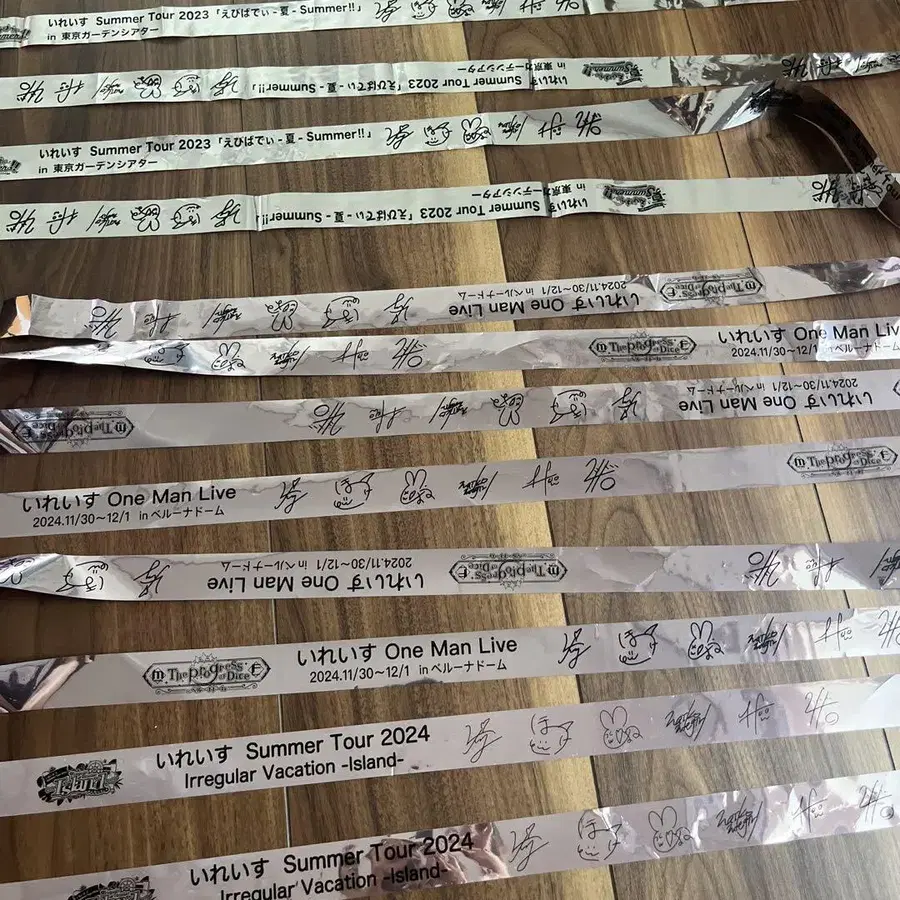 いれいす Summer Tour 2023「えびばでぃ - 夏 - Summer!!」
in 東京ガーデンシアター
いれいす Summer Tour 2023「えびばでぃ - 夏 - Summer!!」
in 東京ガーデンシアター
いれいす Summer Tour 2023「えびばでぃ - 夏 - Summer!!」
in 東京ガーデンシアター
いれいす Summer Tour 2023「えびばでぃ - 夏 - Summer!!」
in 東京ガーデンシアター
いれいす One Man Live
2024.11/30〜12/1 in ベルーナドーム
The Progress of Dice
いれいす One Man Live
2024.11/30〜12/1 in ベルーナドーム
The Progress of Dice
いれいす One Man Live
2024.11/30〜12/1 in ベルーナドーム
The Progress of Dice
いれいす One Man Live
2024.11/30〜12/1 in ベルーナドーム
The Progress of Dice
いれいす One Man Live
2024.11/30〜12/1 in ベルーナドーム
The Progress of Dice
The Progress of Dice
いれいす One Man Live
2024.11/30〜12/1 in ベルーナドーム
Island
いれいす Summer Tour 2024
Irregular Vacation -Island-
いれいす Summer Tour 2024
Irregular Vacation -Island-